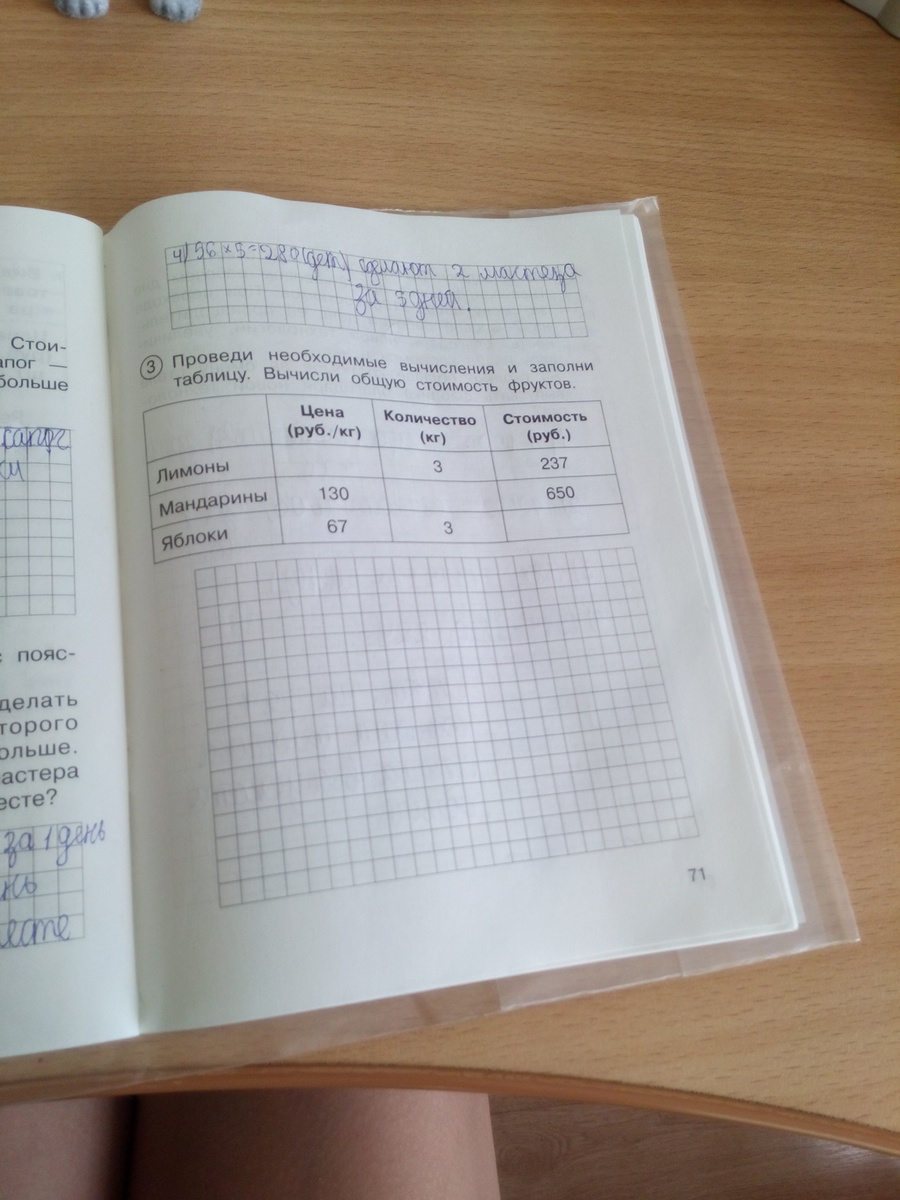 Стои-
апог —
больше
сапог
ки
с пояс-
делать
торого
ольше.
астера
есте?
за 1 день
нь
месте
4) 56 × 5 = 280 (дет) сделают 2 мастера
за 5 дней.
3 Проведи необходимые вычисления и заполни
таблицу. Вычисли общую стоимость фруктов.
Цена (руб./кг) Количество (кг) Стоимость (руб.)
Лимоны 3 237
Мандарины 130 650
Яблоки 67 3
71